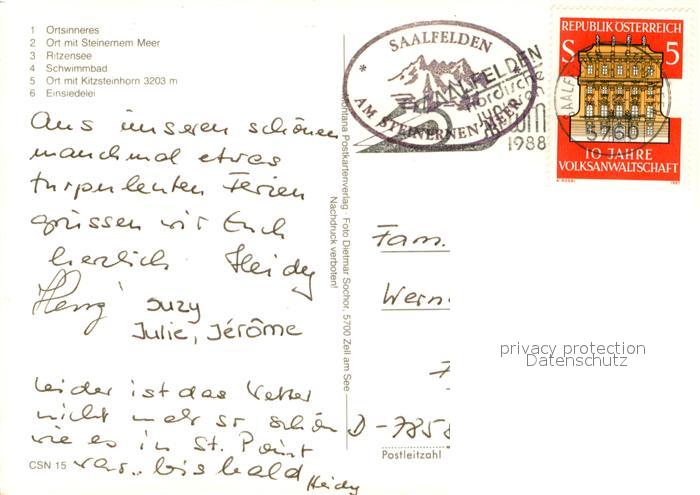 1 Ortsinneres
2 Ort mit Steinernem Meer
3 Ritzensee
4 Schwimmbad
5 Ort mit Kitzsteinhorn 3203 m
6 Einsiedelei
Aus unseren schönen
manchmal etwas
turpulenten Ferien
grüssen wir Euch
herzlich Heidy
Henry Suzy
Julie, Jérôme
Leider ist das Wetter
nicht mehr so schön
wie es in St. Point
war.. bis bald
Heidy
CSN 15
Montana Postkartenverlag · Foto Dietmar Sochor, 5700 Zell am See
Nachdruck verboten!
SAALFELDEN
AM STEINERNEN MEER
SAALFELDEN
Nordische
1988
REPUBLIK ÖSTERREICH
S 5
5760
10 JAHRE
VOLKSANWALTSCHAFT
Fam.
Wern
D-7858
Postleitzahl
privacy protection
Datenschutz